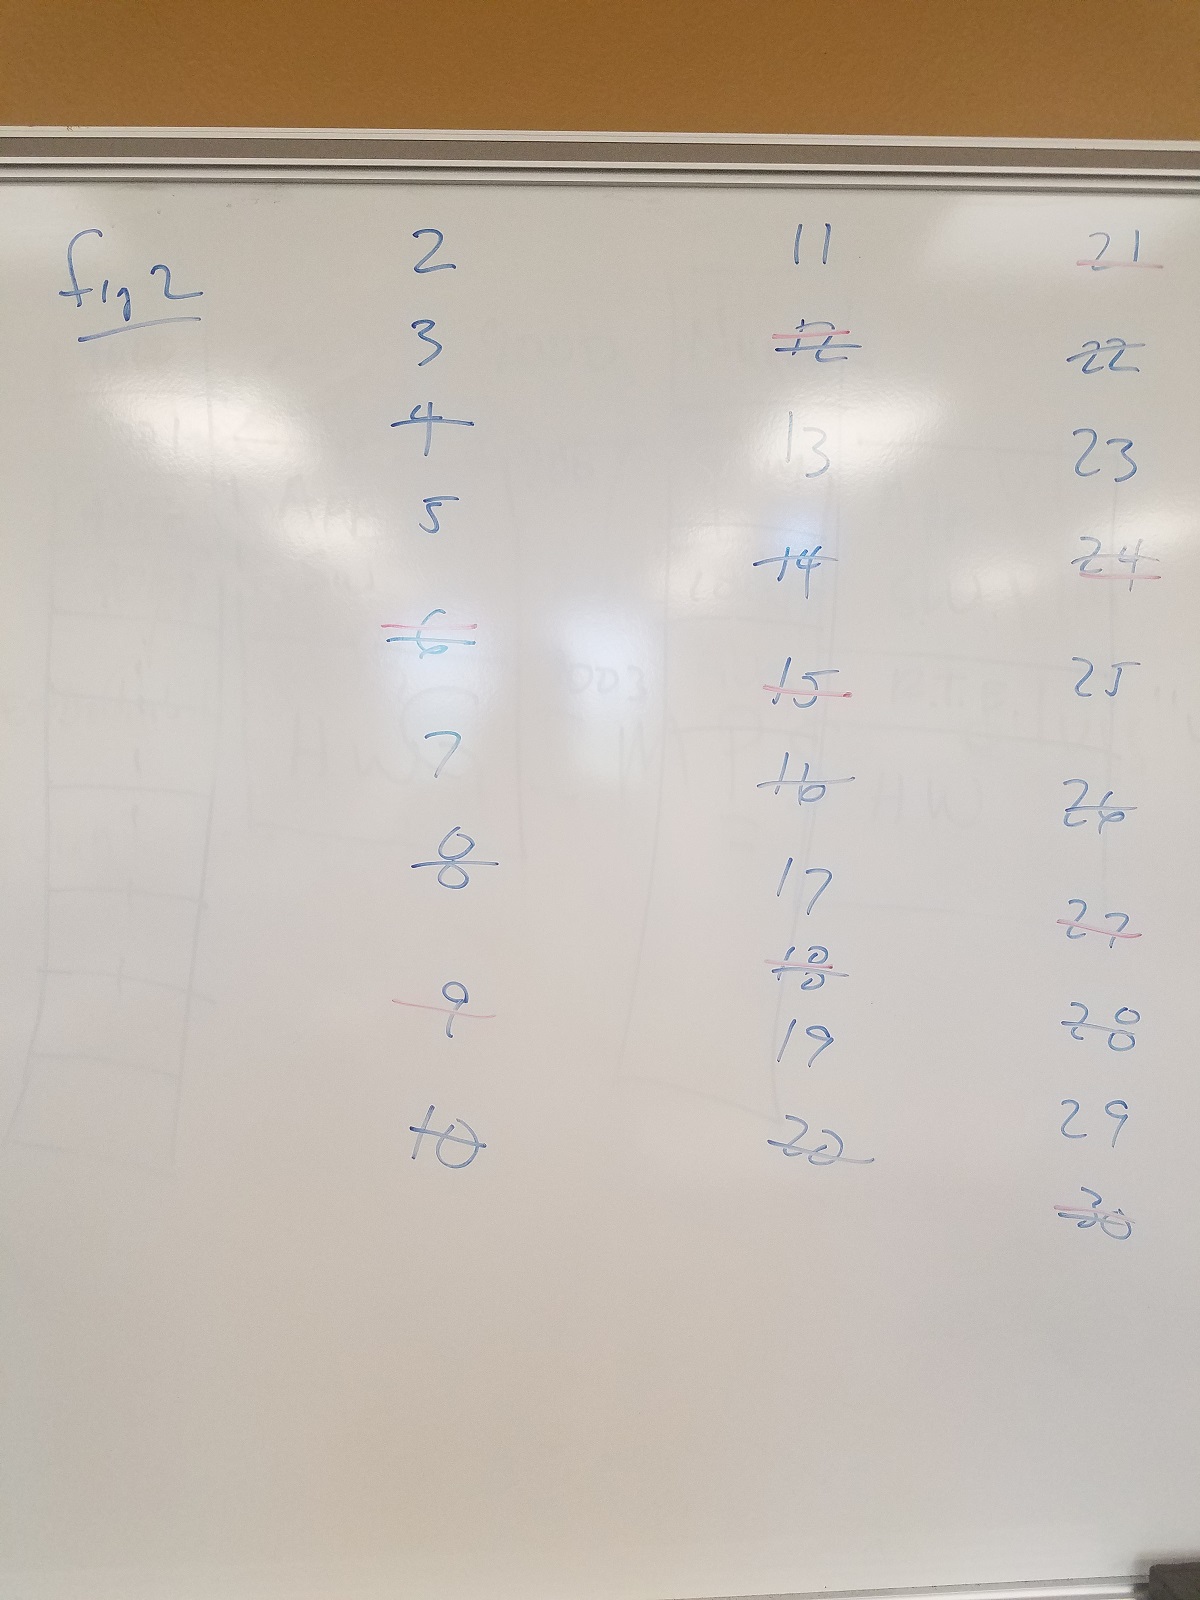 fig 2
2
3
4
5
6
7
8
9
10
11
12
13
14
15
16
17
18
19
20
21
22
23
24
25
26
27
28
29
30